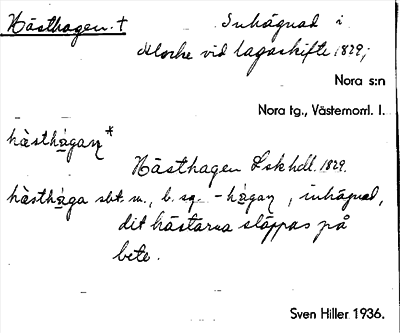 Hästhagen. † Inhägnad i
Klocke vid lagaskifte 1829;
Nora s:n
Nora tg., Västernorrl. l.
hästhàgaɳ*
Hästhagen Lskhdl. 1829.
hästhàga sbt. m., b. sg. -hàgaɳ, inhägnad,
dit hästarna släppas på
bete.
Sven Hiller 1936.